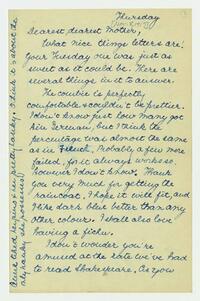 Thursday
Dearest, dearest Mother,
What nice things letters are!
Your Tuesday one was just as
sweet as it could be. There are
several things in it to answer.
The combie is perfectly
comfortable & couldn't be prettier.
I don't know just how many got
him German, but I think the
percentage was almost the same
as in French. Probably a few more
failed, for it always works so.
However I don't know. Thank
you very much for getting the
raincoat, I hope it will fit, and
I like dark blue better than any
other colour. I shall also love
having a fichu.
I don't wonder you're
amused at the rate we've had
to read Shakespeare. As you